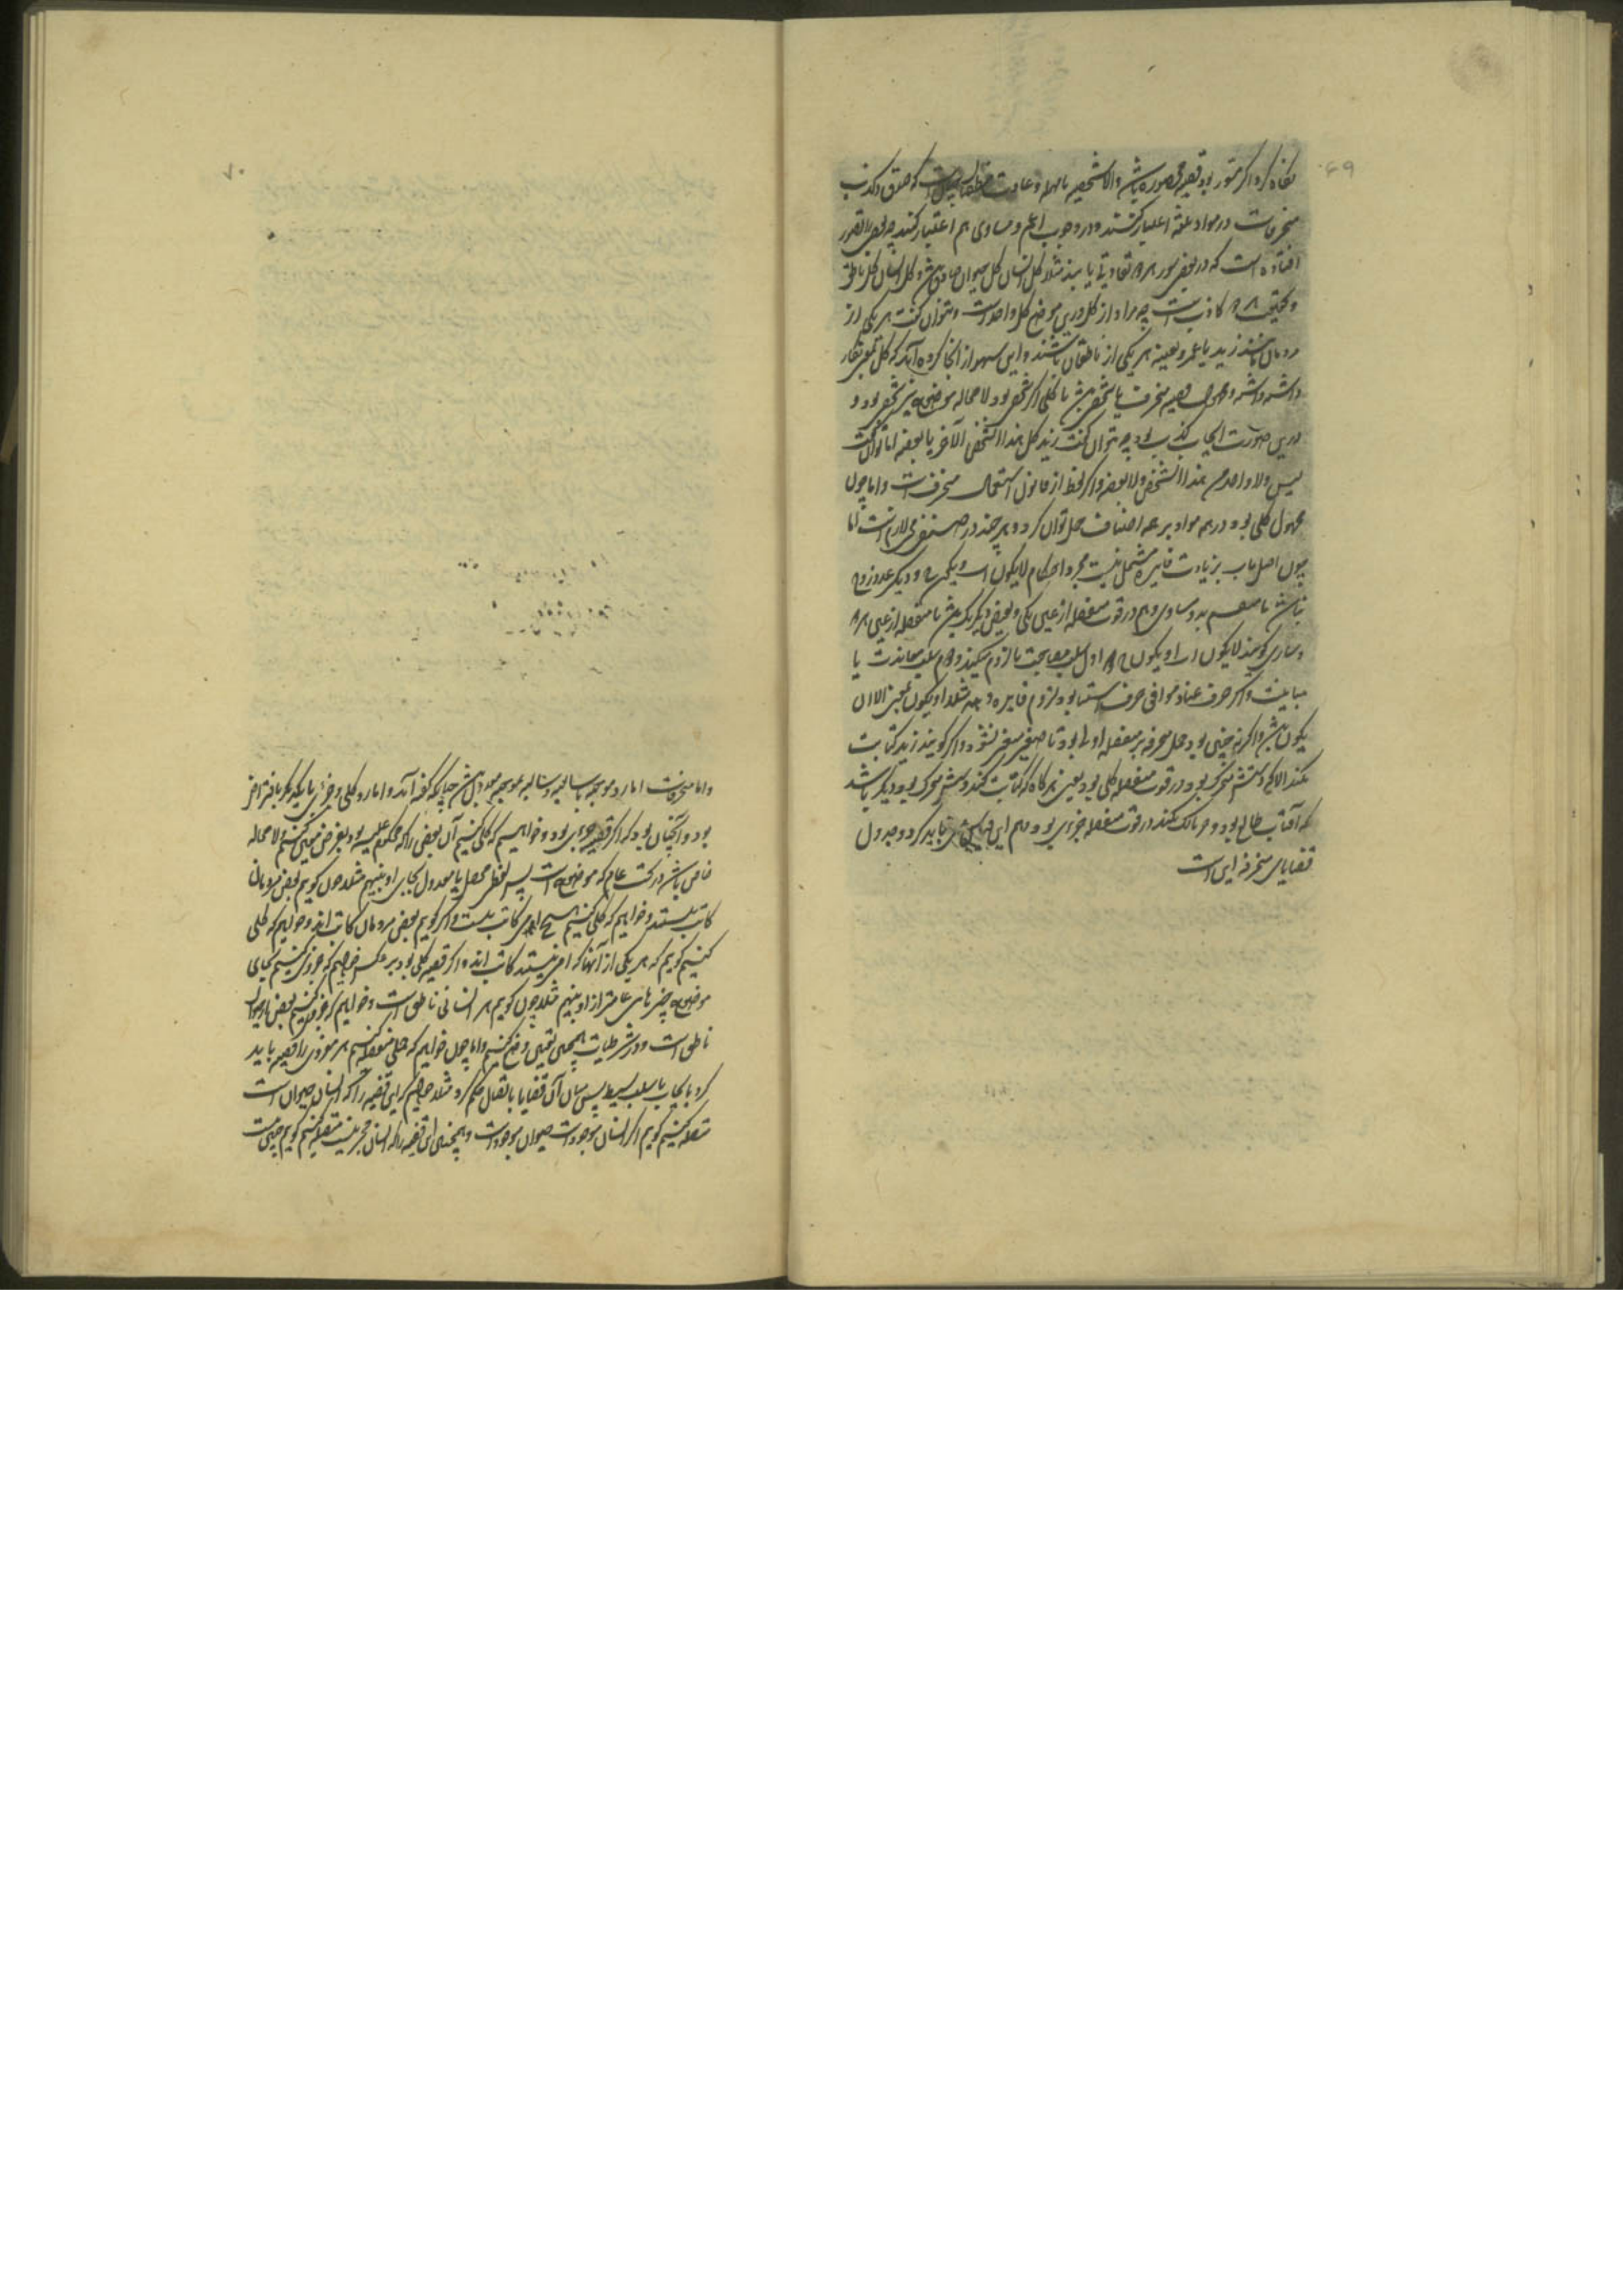 ۶۹
نگاه کرد اگر مسور بود قضیه محصوره باشد والا شخصیه یا مهمله و عادت منطقیان است که صدق و کذب
منحرفات در مواد ثلثه اعتبار کنند و در وجوب اعم و مساوی هم اعتبار کنند چه بعضی را تصور
افتاده است که در بعضی سور هر دو تفاوتی یابند مثلا کل انسان کل حیوان صادق نباشد و کل انسان کل ناطق
و بحقیقت هر دو کاذب است چه مراد از کل درین موضع کل واحد است و نتوان گفت هر یکی از
مردمان مانند زید یا عمرو بعینه هر یکی از ناطقان باشند و این سهو از آنجا کرده اند که کل بمعنی
داشته و محمول قضیه منحرف یا شخصی باشد یا کلی اگر شخصی بود لامحاله موضوع نیز شخصی بود و
درین صورت ایجاب کذب بود چه نتوان گفت زید کل هذا الشخص الآخر یا بعضه اما توان گفت
لیس ولا واحد من هذا الشخص ولا بعضه و اگر لفظ از قانون استعمال منحرفست و اما چون
محمول کلی بود در همه مواد بر همه اصناف حمل توان کرد و هر چند در
چون اصل باب بزیادت فایده مشتمل نیست مجرد احکام لا یکون اب و یکون و دیگر عدد زوج
نباشد یا منقسم بدو مساوی و هم در قوت منفصله از عین یکی و نقیض دیگر یک باشد یا متصله از عین هر دو
و گویند لا یکون اب او یکون اول سلب مصاحبت یا لزوم میکند و دوم سلب معاندت یا
مباینت و اگر حرف عناد موافق حرف استثنا بود لزوم فایده دهد مثلا او یکون بمعنی الا ان
یکون باشد و اگر نه چنین بود حمل محرفه بر منفصله اولی بود تا صیغه متغیر نشود و اگر گویند زید کتابت
نکند الا که دستش متحرک بود در قوت متصله کلی بود یعنی هر گاه که کتابت کند دستش متحرک بود و دیگر باشد
که آفتاب طالع بود و حرمالک کند در قوت متصله جزوی بود و هم این قیاس باید کرد و جدول
قضایای منحرفه این است
۷۰
و اما منحرفات اما رد موجبه بسالبه و سالبه بموجبه بعدول باشد چنانکه گفته آمد و اما رد کلی و جزوی با یکدیگر بافتراض
بود و آنچنان بود که اگر قضیه جزوی بود و خواهیم که کلی کنیم آن بعض را که محکوم علیه بود بفرض معین کنیم و لامحاله
خاص باشد در تحت عام که موضوع است پس لفظ محصل یا معدول بجای او بنهیم مثلا چون گوییم بعضی مردمان
کاتب نیستند و خواهیم که کلی کنیم هیچ امی کاتب نیست و اگر گوییم بعضی مردمان کاتب اند و خواهیم که کلی
کنیم گوییم که هر یکی از آنها که امی نیستند کاتب اند و اگر قضیه کلی بود بر عکس خواهیم که جزوی کنیم بجای
موضوع چیزهای عامتر از او بنهیم مثلا چون گوییم هر انسانی ناطق است و خواهیم که جزوی کنیم بعضی از حیوان
ناطق است و در شرطیات همچنین تعیین وضع کنیم و اما چون خواهیم که حملی متصله کنیم هر مفردی را قضیه باید
کرد بایجاب یا سلب بسیط پس میان آن قضایا باتصال حکم کرد مثلا خواهیم که این قضیه را که انسان حیوان است
متصله کنیم گوییم اگر انسان موجود است حیوان موجود است و همچنین این قضیه را که انسان حجر نیست متصله کنیم گوییم چنین نیست